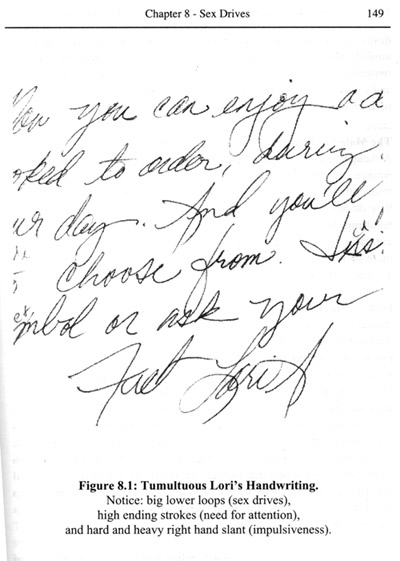 Chapter 8 - Sex Drives 149
you can enjoy a
to order, during
day. And you'll
choose from.
or ask your
Fact Lori
Figure 8.1: Tumultuous Lori's Handwriting.
Notice: big lower loops (sex drives),
high ending strokes (need for attention),
and hard and heavy right hand slant (impulsiveness).